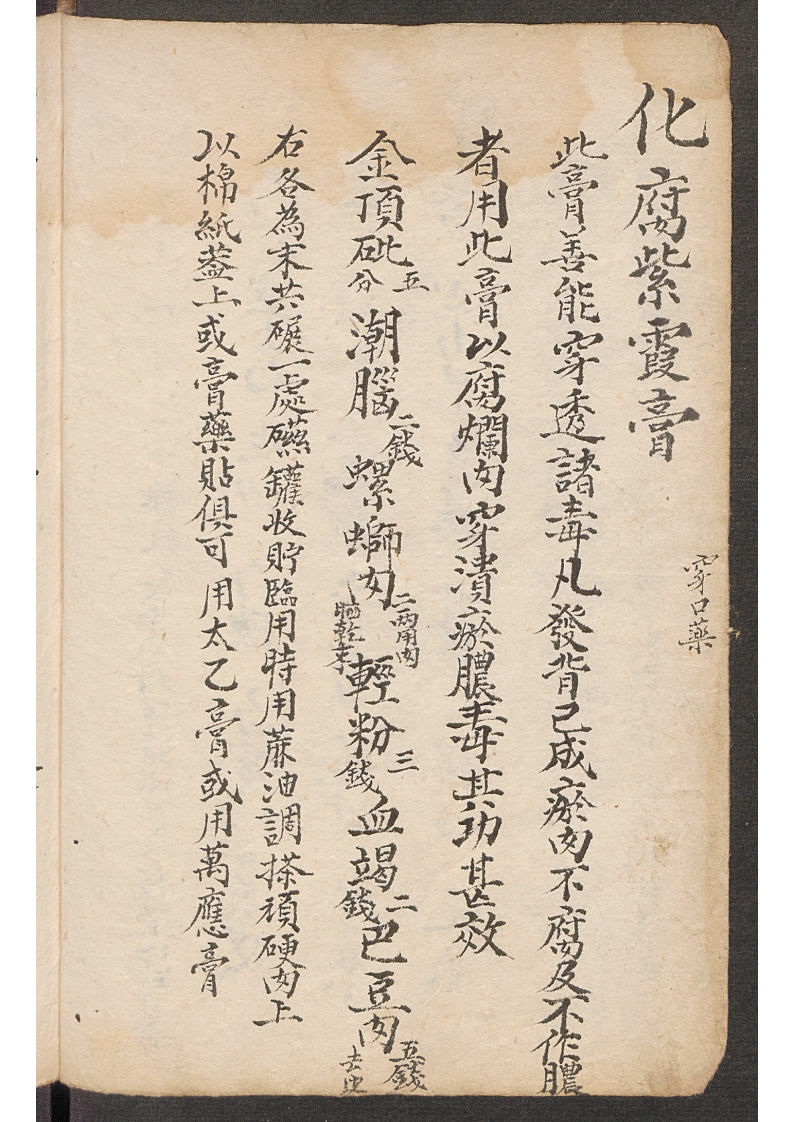 化腐紫霞膏
穿口藥
此膏善能穿透諸毒凡發背已成瘀肉不腐及不作膿
者用此膏以腐爛肉穿潰瘀膿毒其功甚效
金頂砒五分 潮腦二錢 螺螄肉二兩用肉晒乾末 輕粉三錢 血竭二錢 巴豆肉五錢去皮
右各為末共碾一處磁罐收貯臨用時用蔴油調搽頑硬肉上
以棉紙蓋上或膏藥貼俱可用太乙膏或用萬應膏